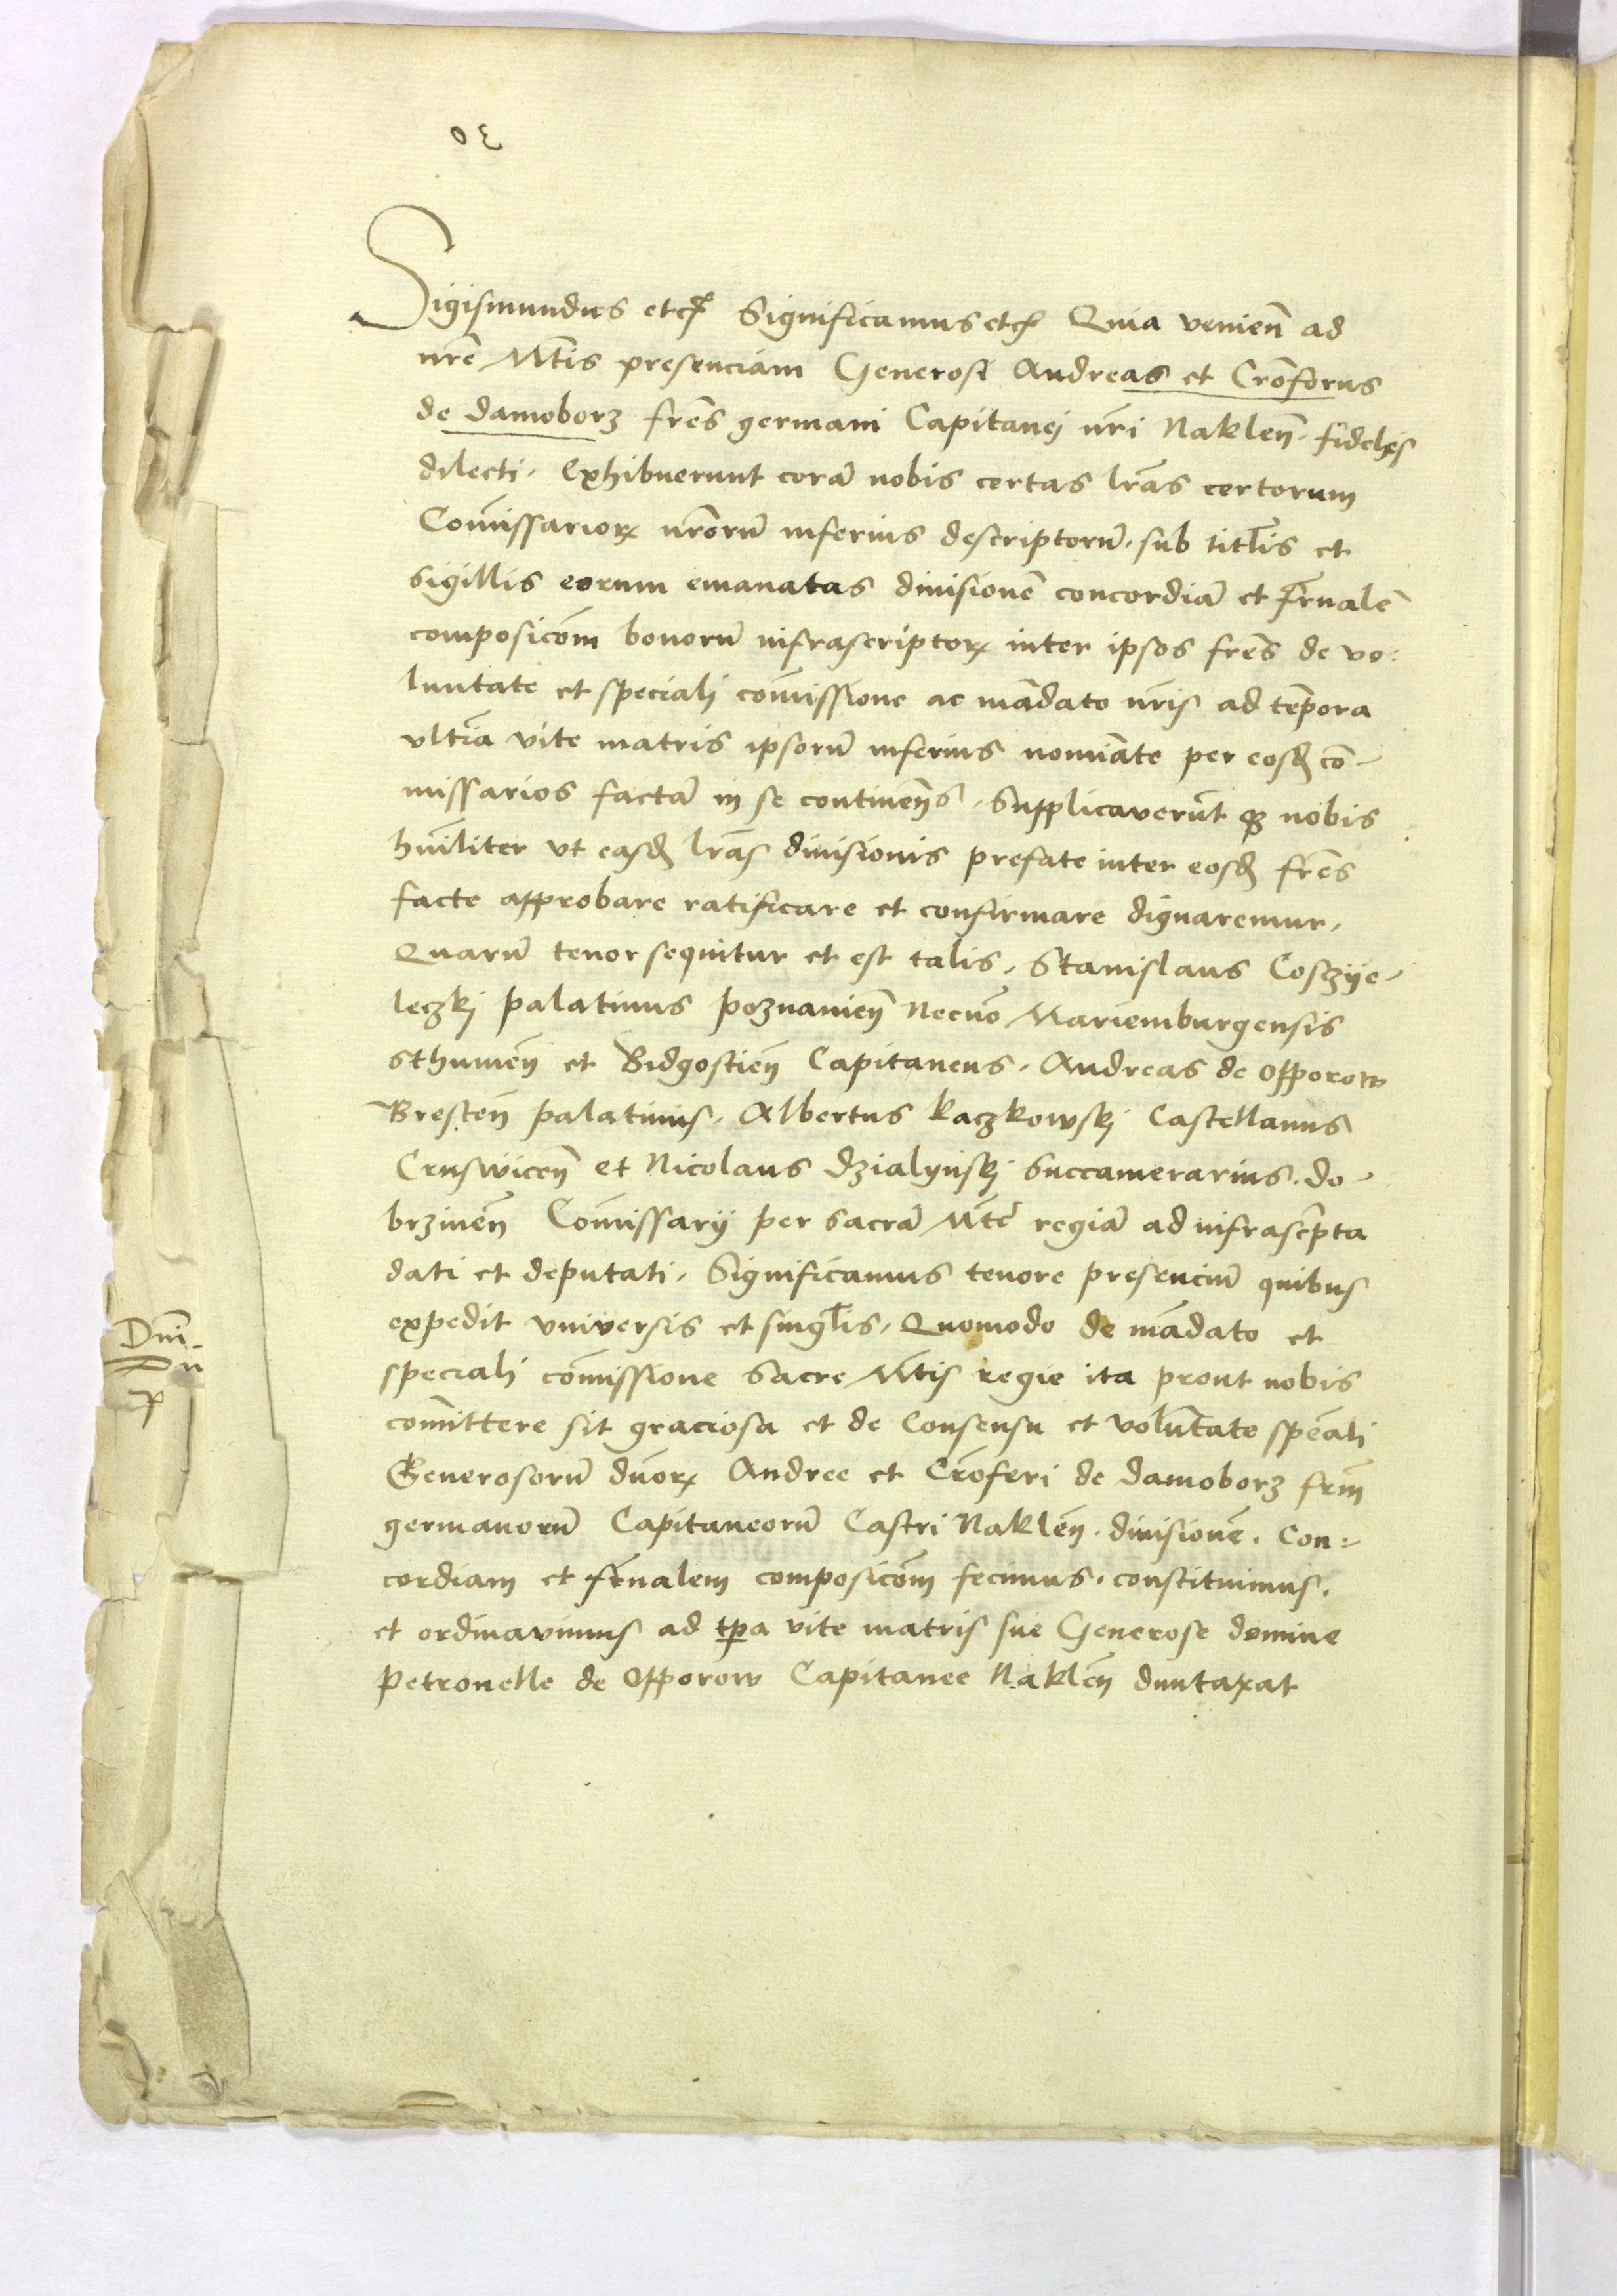 Sigismundus etc̃ Significamus etc̃ Quia venien̄ ad
nr̄e Mt̄is presenciam Generosi Andreas et Cr̄oforus
de damoborz fr̄es germani Capitanej nr̄i Naklen̄. fideles
dilecti. Exhibuerunt corā nobis certas lr̄as certorum
Com̄issarioꝝ nr̄orū inferius descriptorū. sub titl̄is et
sigillis eorum emanatas diuisionē concordiā et fr̄nalē
composicōm bonorū infrascriptoꝝ inter ipsos fr̄es de vo:
luntate et speciali com̄issione ac mādato nr̄is ad tēpora
vltīa vite matris ipsorū inferius nomīate per eosd̄ cō-
missarios factā in se continen̄s. Supplicaverūt qȝ nobis
hūiliter vt easd̄ lr̄as diuisionis prefate inter eosd̄ fr̄es
facte approbare ratificare et confirmare dignaremur.
Quarū tenor sequitur et est talis. Stanislaus Cosczije-
leczkj palatinus poznanien̄ Necnō Mariemburgensis
sthumen̄ et Bidgostien̄ Capitaneus. Andreas de Opporow
Bresten̄ palatinus. Albertus kaczkowskj Castellanus
Cruswicen̄ et Nicolaus dzialynskj Succamerarius. do-
brzinen̄ Com̄issarij per sacrā Mt̄ē regiā ad infrascr̄pta
dati et deputati. Significamus tenore presenciū quibus
expedit vniversis et singl̄is. Quomodo de mādato et
speciali com̄issione Sacre Mt̄is regie ita prout nobis
com̄ittere sit graciosa et de Consensu et volūtate spēali
Generosorū duoꝝ Andree et Cr̄oferi de damoborz frm̄
germanorū Capitaneorū Castri Naklen̄. diuisionē. Con:
cordiam et fr̄nalem composicōm fecimus. constituimus.
et ordinavimus ad tp̄a vite matris sue Generose domine
Petronelle de Opporow Capitanee Naklen̄ duntaxat